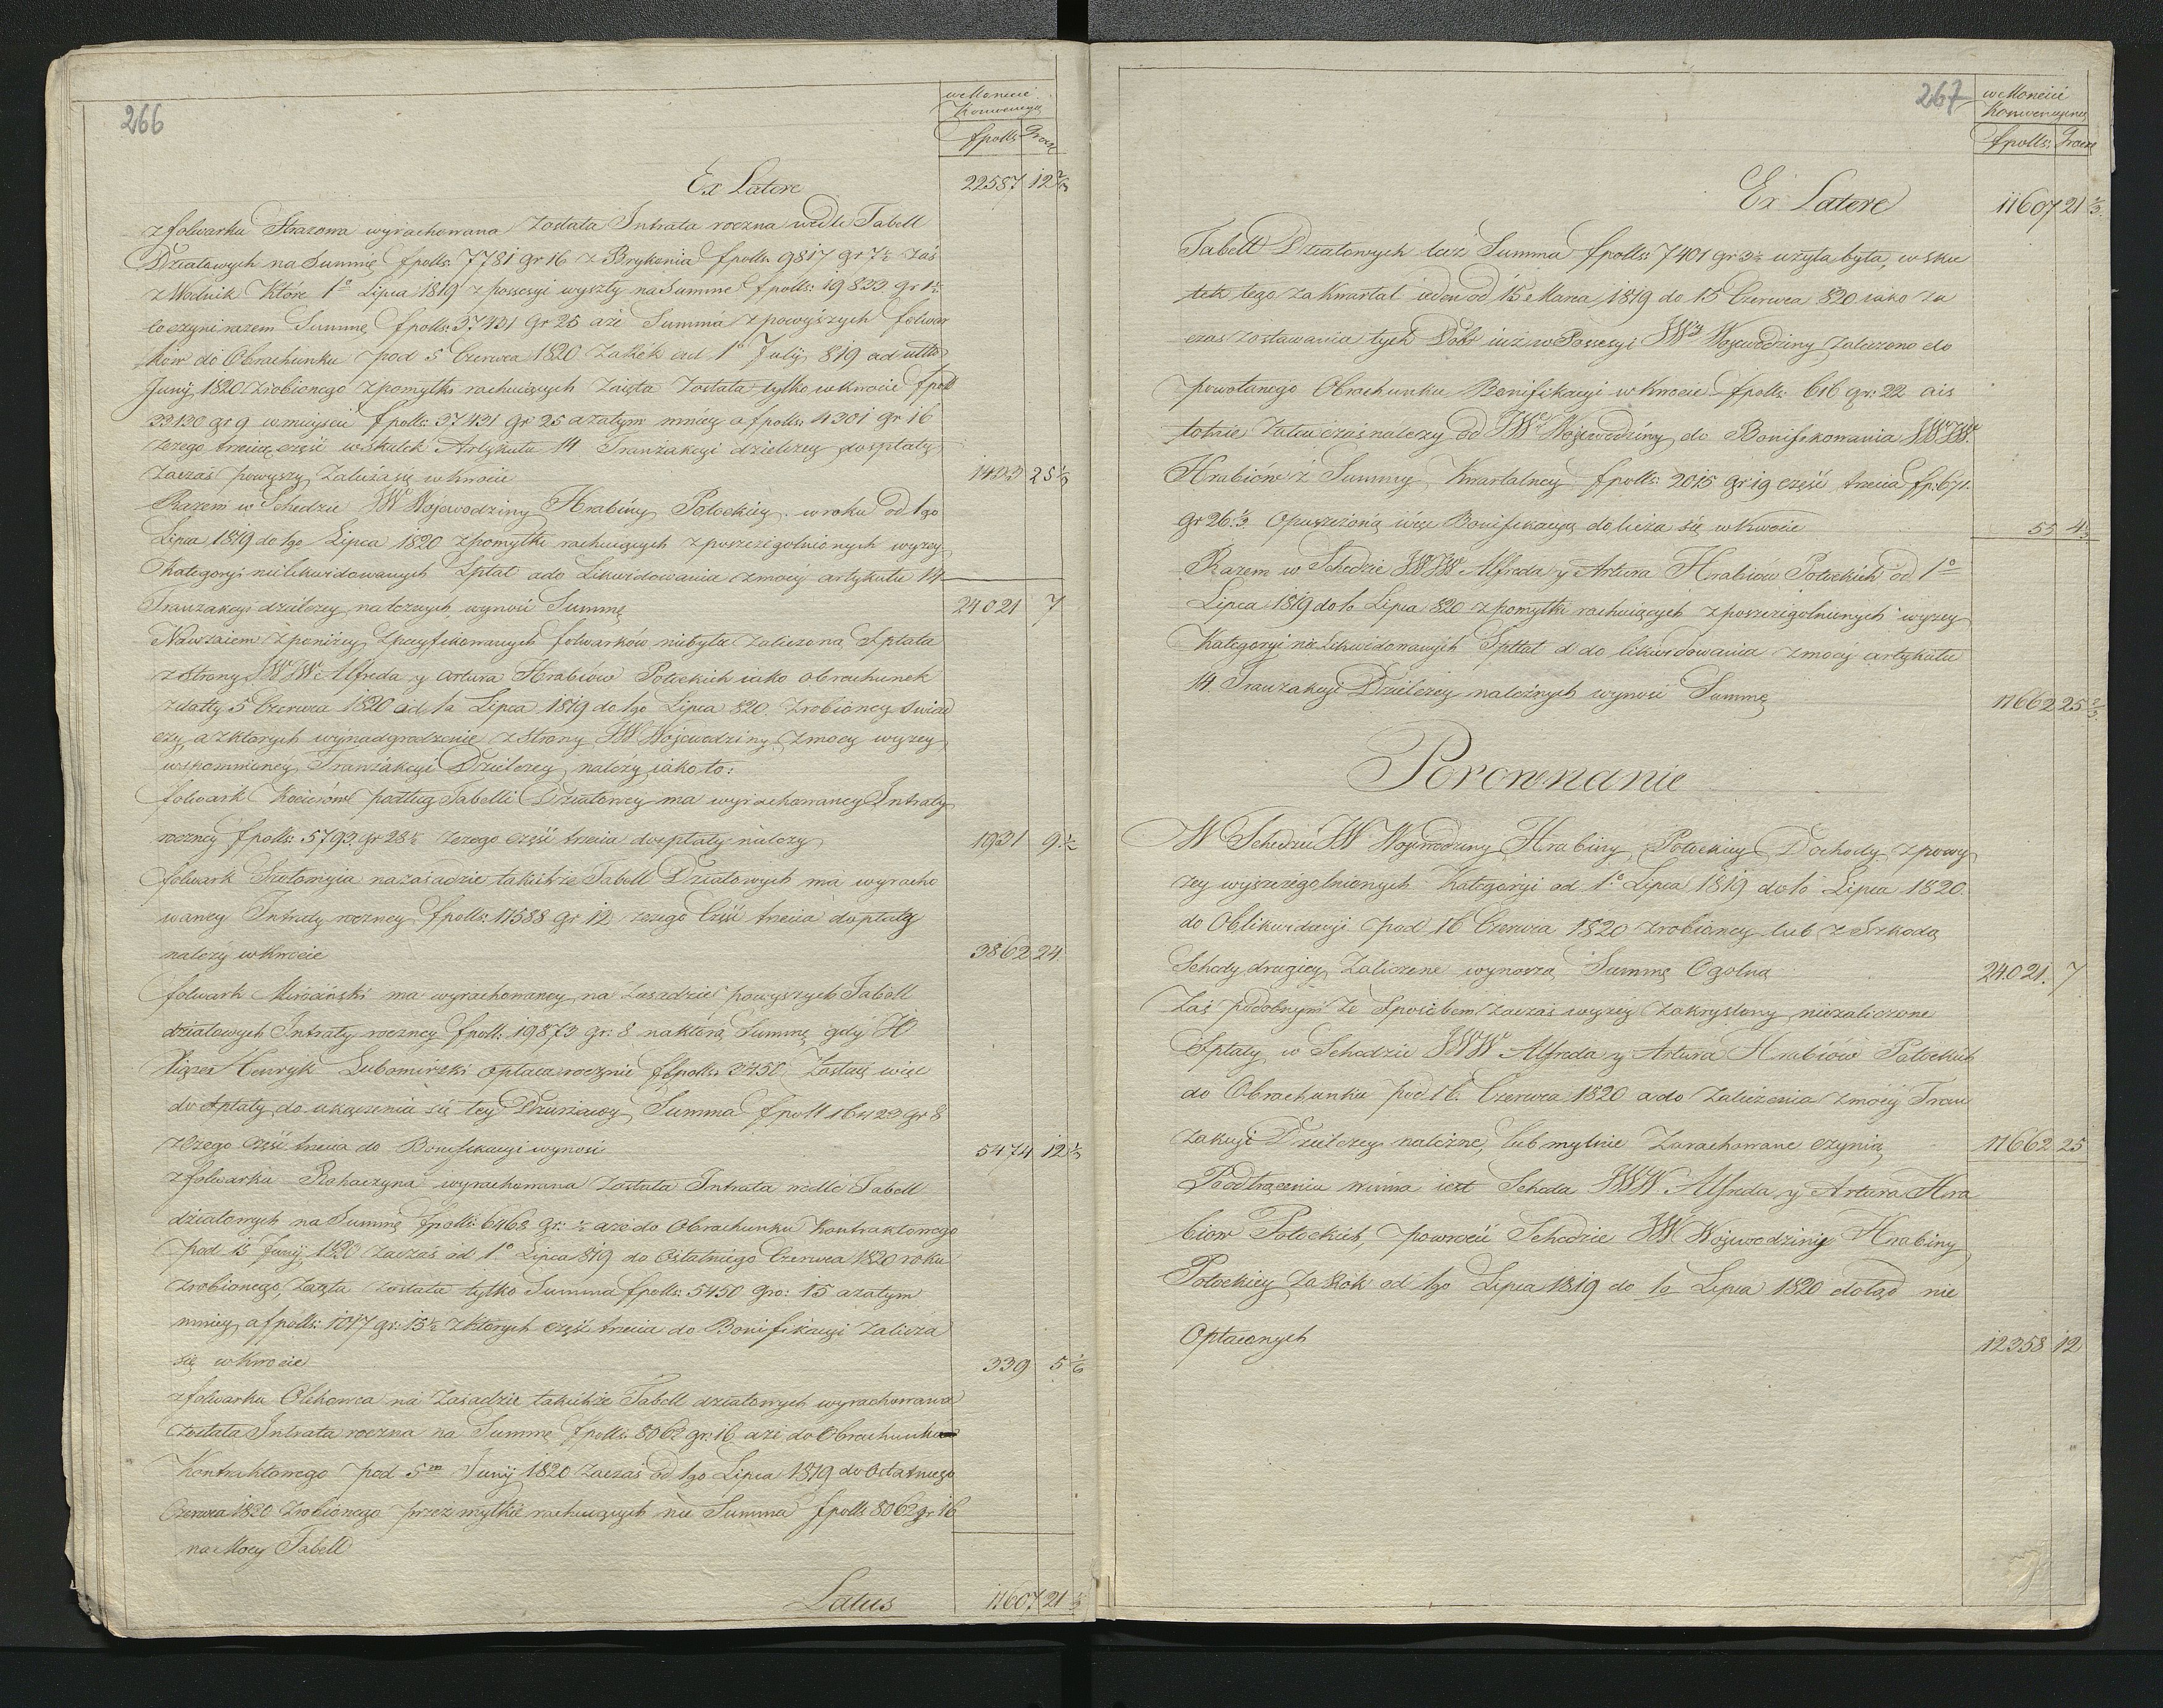 266
w Monecie
Konwencyą
fpolls: Grosze
Ex Latere 22587 12 2/3
z folwarku Strazowa wyrachowana została Intrata roczna wedle Tabell
Działowych na Summę fpolls. 7781 gr 16 z Brykonia fpolls. 9817 gr 7½ zaś
z Wodnik które 1o Lipca 1819 z possesyi wyszły na Summę fpolls: 19833 gr 1½
co czyni razem Summę fpolls: 37431 gr 25 aże Summa z powyższych folwar
ków do Obrachunku pod 5 Czerwca 1820 za Rok od 1o July 819 ad ulto
Juny 1820 zrobionego z pomyłki rachuiących zaięta została tylko w kwocie fpoll
33130 gr 9 w mieyscu fpolls: 37431 gr 25 a zatym mniey o fpolls: 4301 gr 16
z czego trzecią część w skutek Artykułu 14 Tranzakcyi dzielczey do spłaty
za czas powyższy zalicza się w kwocie 1433 25 1/3
Razem w Schedzie JW Wojewodziny Hrabiny Potockiey w roku od 1go
Lipca 1819 do 1go Lipca 1820 z pomyłki rachuiących z poszczególnionych wyżey
Kategoryi nielikwidowanych Spłat a do Likwidowania z mocy artykułu 14
Tranzakcyi dzielczey należnych wynosi Summę 24021 7
Nawzaiem z poniżey specyfikowanych folwarków niebyła zaliczona Spłata
z strony JWW Alfreda y Artura Hrabiów Potockich iako obrachunek
z daty 5 Czerwca 1820 od 1o Lipca 1819 do 1go Lipca 820 zrobioney świad
czy, a z których wynadgrodzenie z strony JW Wojewodziny z mocy wyżey
wspomnioney Tranzakcyi Dzielczey należy iako to:
folwark podług Tabelli Działowey ma wyrachowaney Intraty
roczney fpolls: 5793 gr 28½ z czego część trzecia do spłaty należy 1931 9½
folwark na zasadzie takichże Tabell Działowych ma wyracho
waney Intraty roczney fpolls: 11588 gr 12 z czego Część trzecia do spłaty
należy w kwocie 3862 24
folwark ma wyrachowaney na zasadzie powyższych Tabell
działowych Intraty roczney fpolls: 19873 gr: 8 na którą Summę gdy JO
Xiąże Henryk Lubomirski opłaca rocznie fpolls: 3450 Zostaie więc
do spłaty do ukończenia się tey Dzierżawy Summa fpoll 16423 gr 8
z czego część trzecia do Bonifikacyi wynosi 5474 12 1/3
z folwarku Rohaczyna wyrachowana została Intrata wedle Tabell
działowych na Summę fpolls: 6468 gr: ½ aże do Obrachunku Kontraktowego
pod 15 Juny 1820 za czas od 1o Lipca 819 do Ostatniego Czerwca 1820 roku
zrobionego, zaięta została tylko Summa fpolls: 5450 gro: 15 a zatym
mniey o fpolls: 1017 gr: 15½ z których część trzecia do Bonifikacyi zalicza
się w kwocie 339 5 1/6
z folwarku Olchowca na zasadzie takichże Tabell działowych wyrachowana
została Intrata roczna na Summę fpolls: 8062 gr: 16 aże do Obrachunku
Kontraktowego pod 5m Juny 1820 za czas od 1go Lipca 1819 do Ostatniego
Czerwca 1820 zrobionego przez myłkie rachuiących nie Summa fpolls 8062 gr 16
na Mocy Tabell
Latus 11607 21 1/3
267
w Monecie
Konwencyiną
fpolls: Grosze
Ex Latere 11607 21 1/3
Tabell Działowych lecz Summa fpolls: 7401 gr 3½ użyta była, w sku
tek tego za Kwartał ieden od 15 Marca 1819 do 15 Czerwca 820 iako za
czas zostawania tych Dóbr iuż w Possesyi JWy Wojewodziny zaliczono do
powołanego Obrachunku Bonifikacyi w kwocie fpolls: 616 gr: 22 ais
totnie zaliczaś należy od JW Wojewodziny do Bonifikowania JWW.
Hrabiów z Summy Kwartalney fpolls: 2015 gr: 19 część trzecia fp: 671.
gr 26 1/3 opuszczoną więc Bonifikacyą dolicza się w kwocie 55 4 1/3
Razem w Schedzie JWW Alfreda y Artura Hrabiów Potockich od 1o
Lipca 1819 do 1o Lipca 820 z pomyłki rachuiących z poszczególnionych wyżey
Kategoryi nielikwidowanych Spłat a do likwidowania z mocy artykułu
14. Tranzakcyi Dzielczey należnych wynosi Summę 11662 25 2/3
Porownanie
W Schedzie JW Wojewodziny Hrabiny Potockiey Dochody z powy
żey wyszczególnionych Kategoryi od 1o Lipca 1819 do 1o Lipca 1820.
do Oblikwidacyi pod 16 Czerwca 1820 zrobioney lub z Szkodą
Schedy drugiey Zaliczone wynoszą Summę Ogolną 24021. 7
Zaś podobnym że sposobem za czas wyżey zakryslony niezaliczone
Spłaty w Schedzie JWW Alfreda y Artura Hrabiów Potockich
do Obrachunku pod 16. Czerwca 1820 a do Zaliczenia z mocy Tran
zakcyi Dzielczey należne, lub mylnie Zarachowane czynią 11662 25
Po odtrąceniu winna iest Scheda JWW. Alfreda y Artura Hra
biow Potockich, powrócić Schedzie JW Wojewodziny Hrabiny
Potockiey za Rok od 1go Lipca 1819 do 1o Lipca 1820 dotąd nie
Opłaconych 12358 12